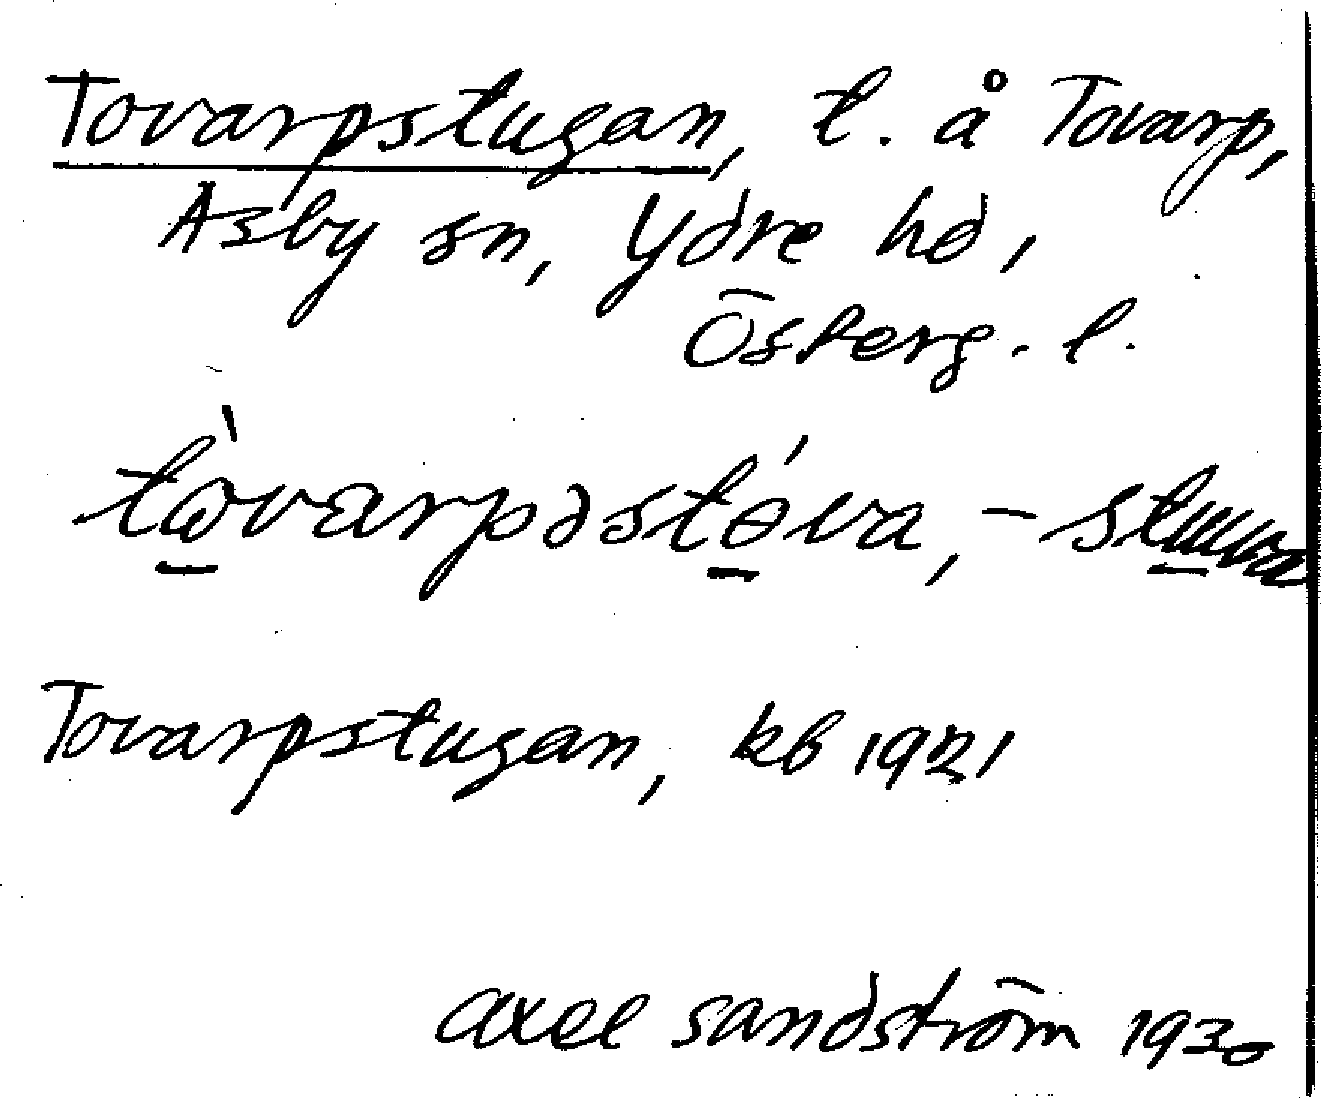 Tovarpstugan, t. å Tovarp,
Asby sn, Ydre hd,
Österg. l.
tòvarpəstéva, -stuva
Tovarpstugan, kb 1921
axel sandström 1930